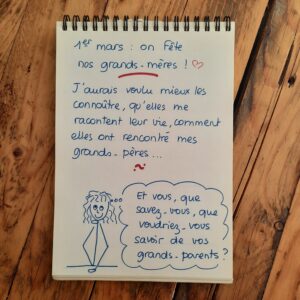 1er mars : on fête
nos grands-mères ! ♡
J'aurais voulu mieux les
connaître, qu'elles me
racontent leur vie, comment
elles ont rencontré mes
grands-pères...
Et vous, que
savez-vous, que
voudriez-vous
savoir de vos
grands-parents ?